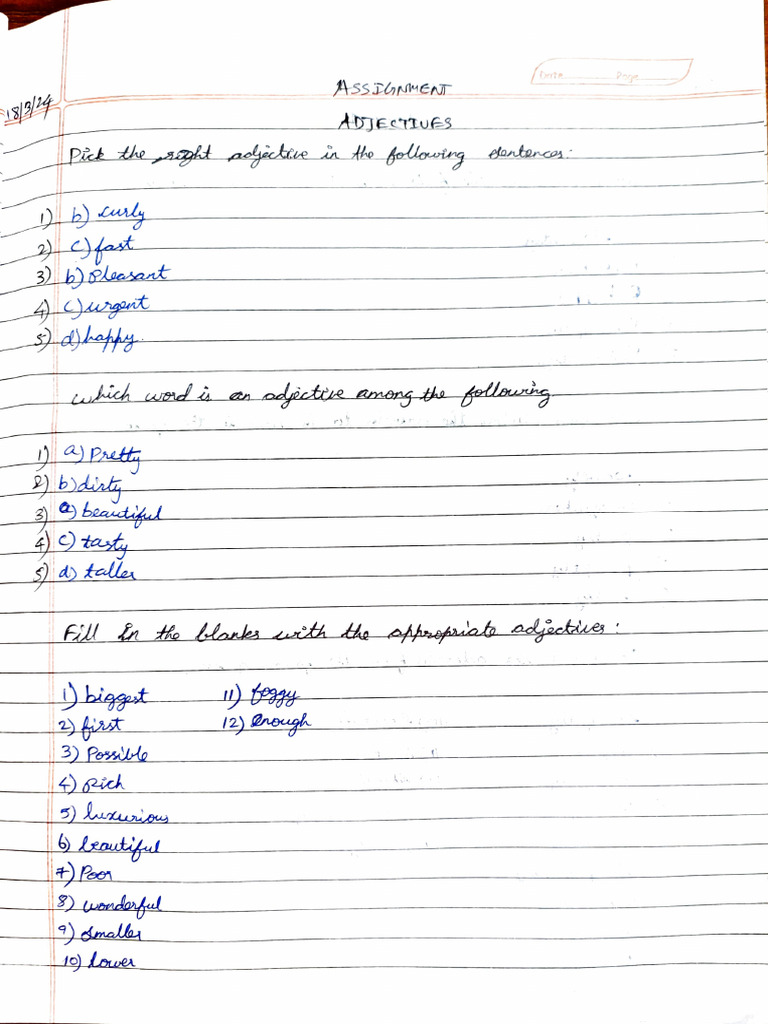 Date Page
ASSIGNMENT
18/3/24
ADJECTIVES
Pick the right adjective in the following sentences:
1) b) curly
2) c) fast
3) b) Pleasant
4) c) urgent
5) d) happy.
Which word is an adjective among the following
1) a) Pretty
2) b) dirty
3) a) beautiful
4) c) tasty
5) d) taller
Fill in the blanks with the appropriate adjectives:
1) biggest 11) foggy
2) first 12) enough
3) Possible
4) Rich
5) luxurious
6) beautiful
7) Poor
8) wonderful
9) smaller
10) lower